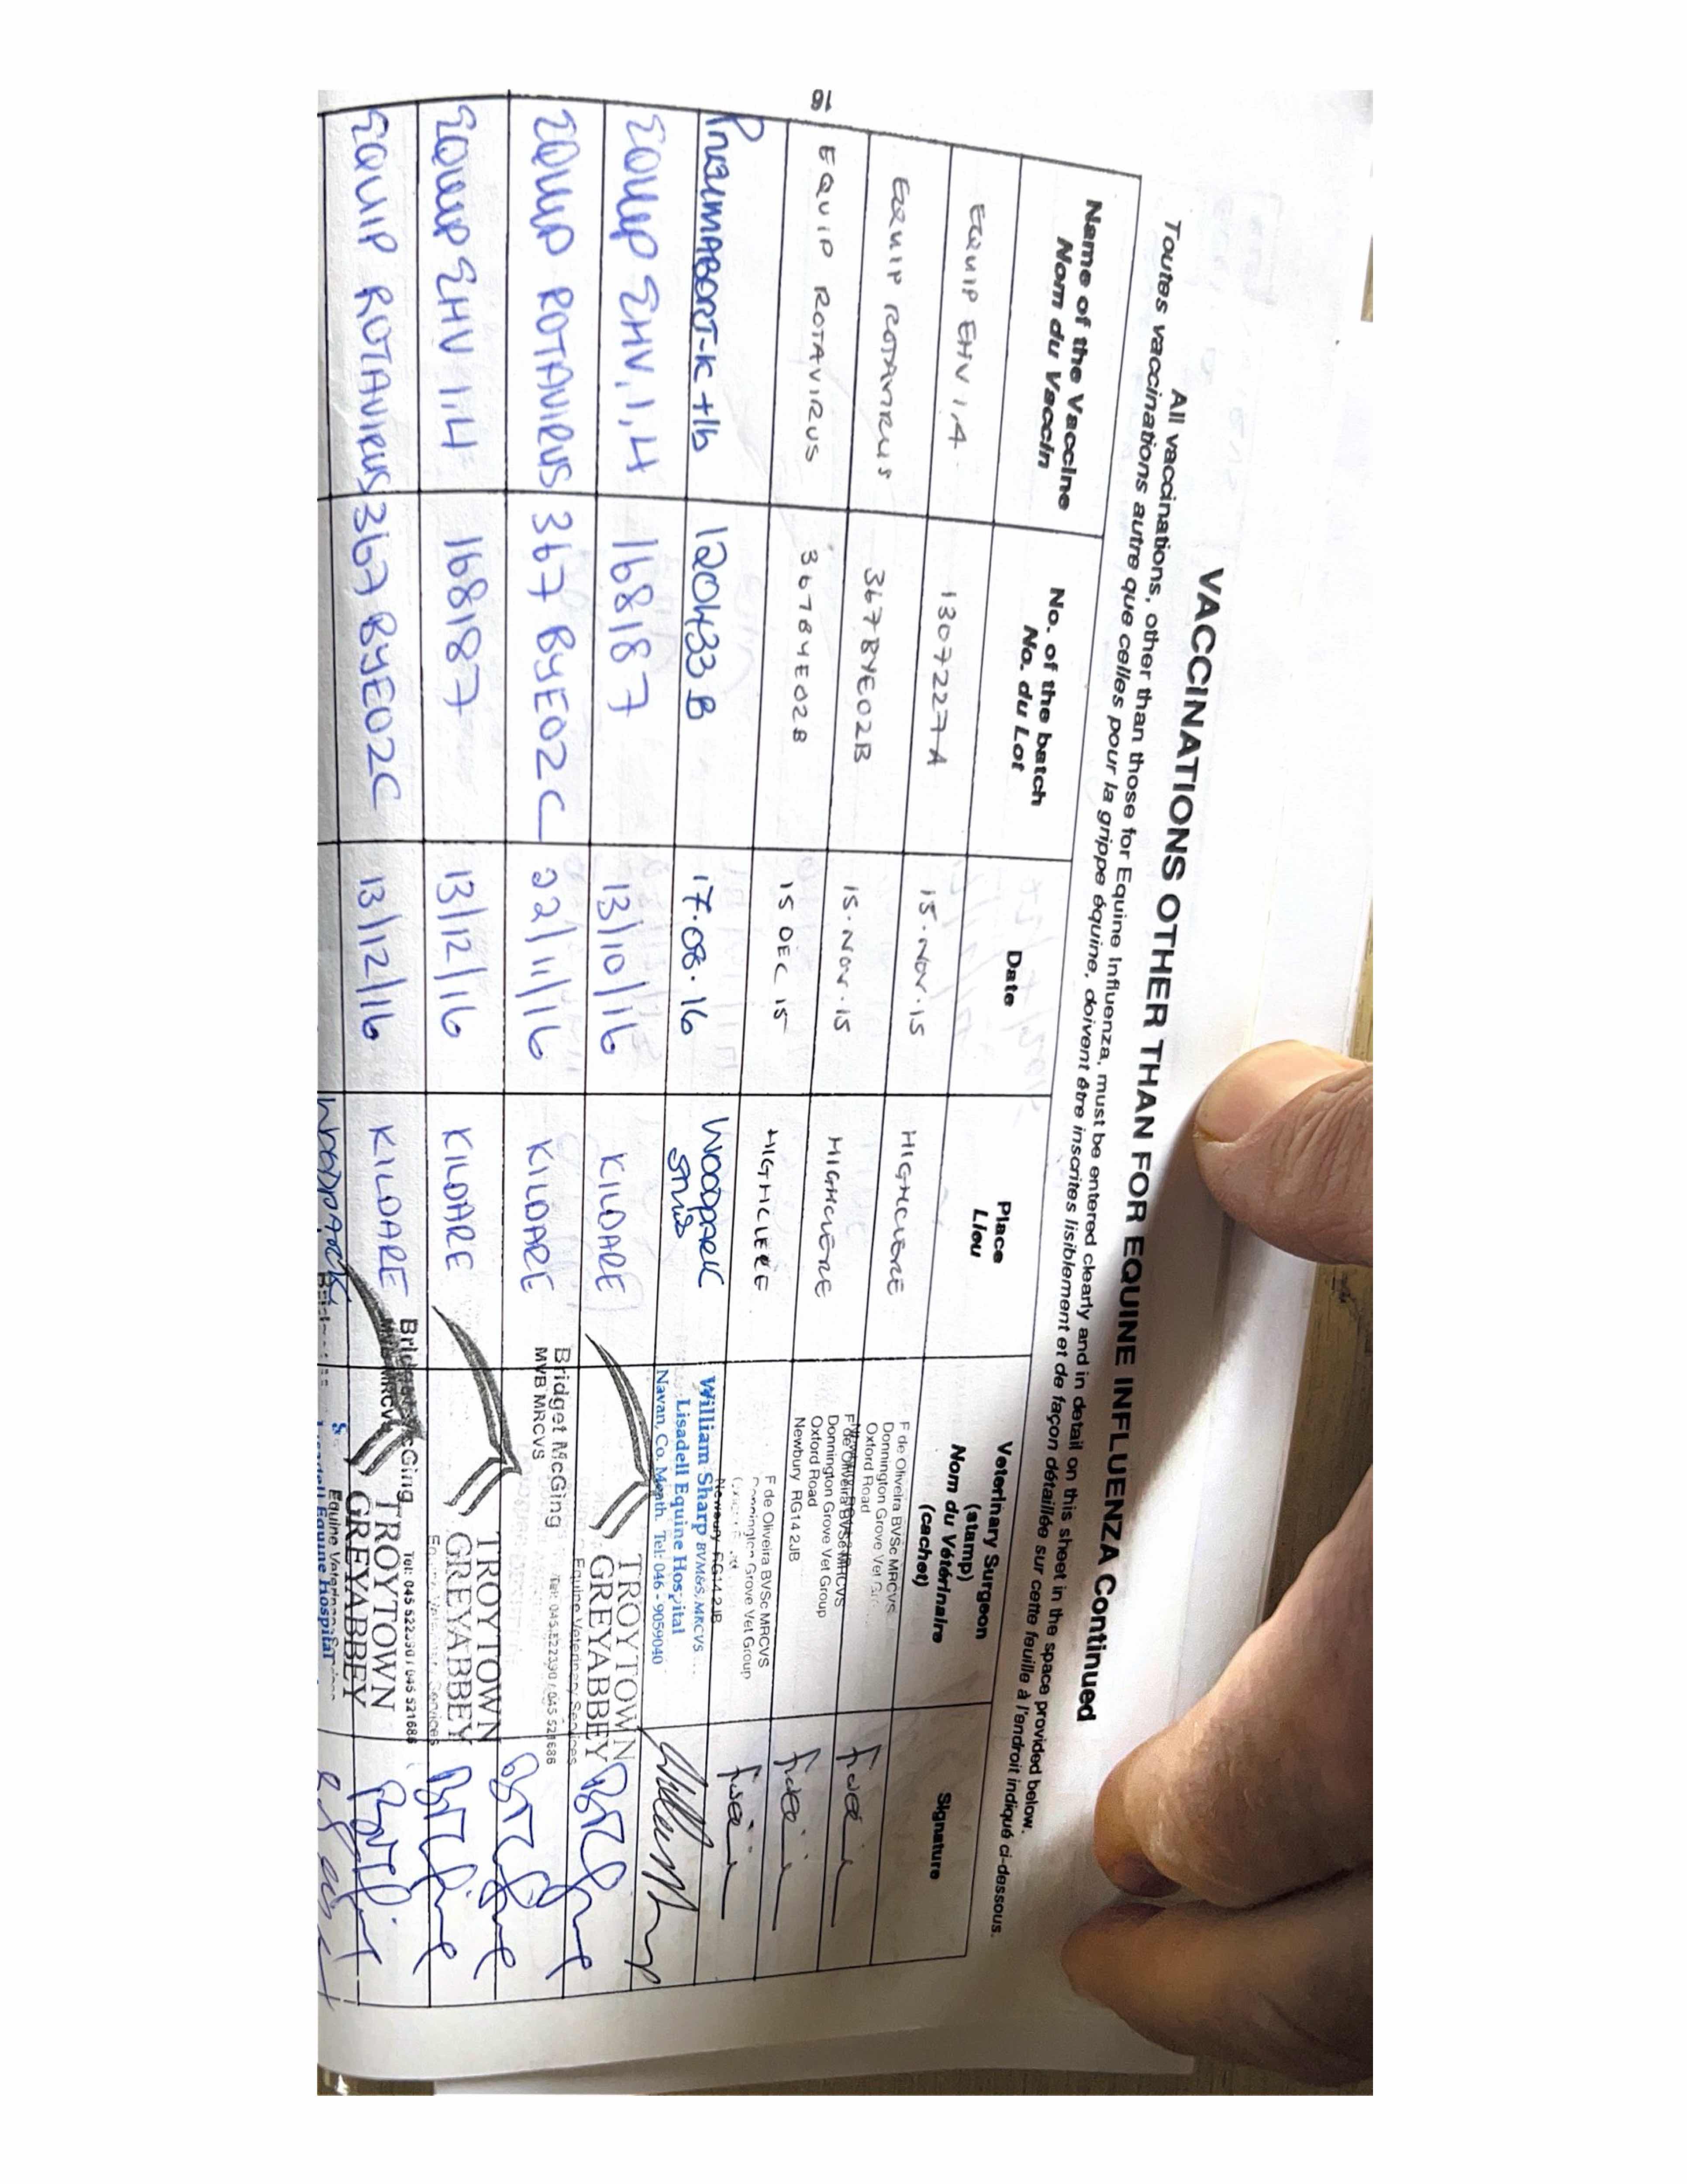 VACCINATIONS OTHER THAN FOR EQUINE INFLUENZA Continued
All vaccinations, other than those for Equine Influenza, must be entered clearly and in detail on this sheet in the space provided below.
Toutes vaccinations autre que celles pour la grippe équine, doivent être inscrites lisiblement et de façon détaillée sur cette feuille à l'endroit indiqué ci-dessous.
Name of the Vaccine
Nom du Vaccin
No. of the batch
No. du Lot
Date
Place
Lieu
Veterinary Surgeon
(stamp)
Nom du Vétérinaire
(cachet)
Signature
EQUIP EHV 1,4 1307227A 15.NOV.15 HIGHCLERE
F de Oliveira BVSc MRCVS
Donnington Grove Vet
Oxford Road
EQUIP ROTAVIRUS 367BYE02B 15.NOV.15 HIGHCLERE
F de Oliveira BVSc MRCVS
Donnington Grove Vet Group
Oxford Road
Newbury RG14 2JB
EQUIP ROTAVIRUS 367BYE02B 15 DEC 15 HIGHCLERE
F de Oliveira BVSc MRCVS
Donnington Grove Vet Group
Newbury RG14 2JB
PNEUMABORT-K +1b 120433B 17.08.16 WOODPARK
STUD
William Sharp BVM&S, MRCVS
Lisadell Equine Hospital
Navan, Co. Meath. Tel: 046 - 9059040
EQUIP EHV,1,4 168187 13/10/16 KILDARE
TROYTOWN
GREYABBEY
Equine Veterinary Services
Tel: 045 522390 / 045 521686
EQUIP ROTAVIRUS 367BYE02C 22/11/16 KILDARE
Bridget McGing
MVB MRCVS
EQUIP EHV 1,4 168187 13/12/16 KILDARE
TROYTOWN
GREYABBEY
Services
EQUIP ROTAVIRUS 367BYE02C 13/12/16 KILDARE
McGing
MRCVS
Tel: 045 522390 / 045 521686
TROYTOWN
GREYABBEY
Equine Veterinary Services
WOODPARK
Equine Hospital
16